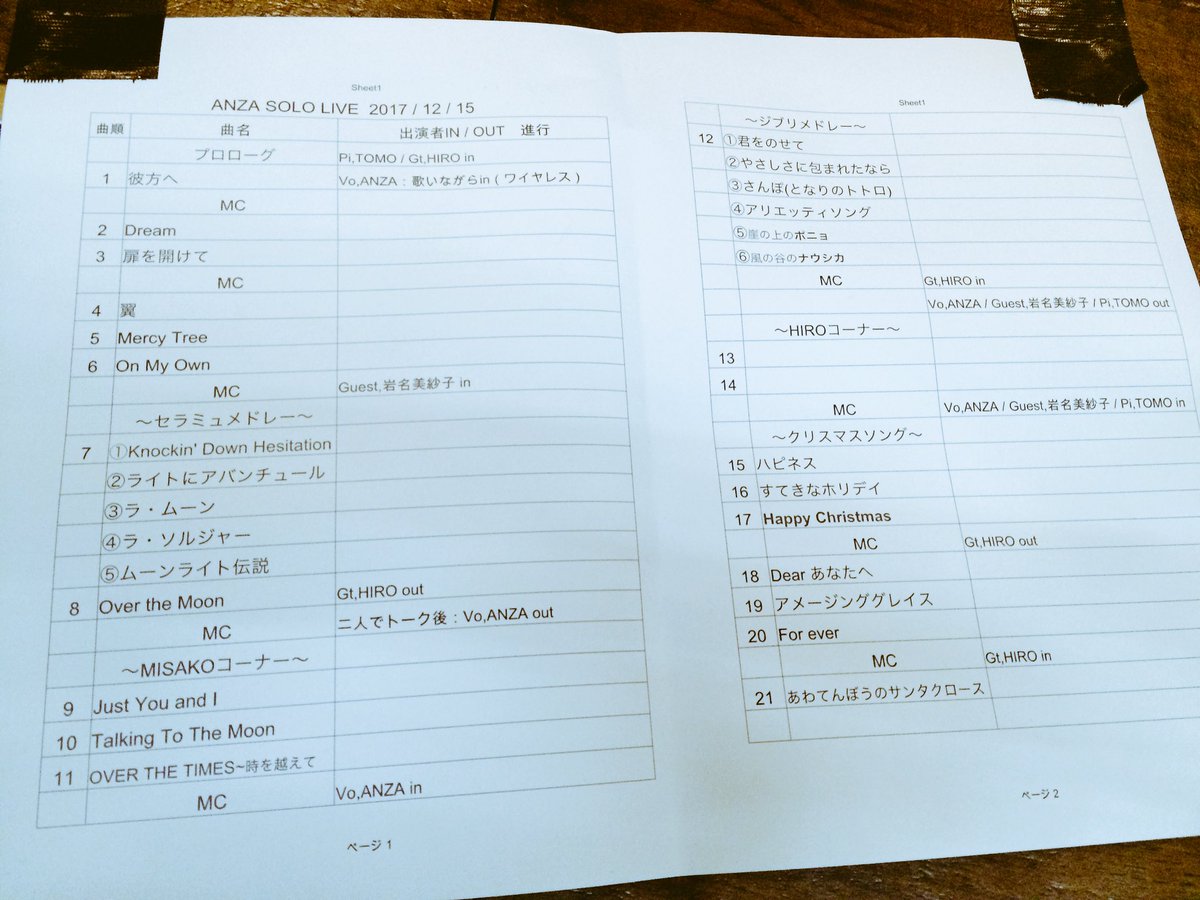 Sheet1
ANZA SOLO LIVE 2017 / 12 / 15
曲順 曲名 出演者IN / OUT 進行
プロローグ Pi,TOMO / Gt,HIRO in
1 彼方へ Vo,ANZA : 歌いながらin ( ワイヤレス )
MC
2 Dream
3 扉を開けて
MC
4 翼
5 Mercy Tree
6 On My Own
MC Guest,岩名美紗子 in
～セラミュメドレー～
7 ①Knockin' Down Hesitation
②ライトにアバンチュール
③ラ・ムーン
④ラ・ソルジャー
⑤ムーンライト伝説
8 Over the Moon Gt,HIRO out
MC 二人でトーク後 : Vo,ANZA out
～MISAKOコーナー～
9 Just You and I
10 Talking To The Moon
11 OVER THE TIMES~時を越えて
MC Vo,ANZA in
ページ 1
Sheet1
～ジブリメドレー～
12 ①君をのせて
②やさしさに包まれたなら
③さんぽ(となりのトトロ)
④アリエッティソング
⑤崖の上のポニョ
⑥風の谷のナウシカ
MC Gt,HIRO in
Vo,ANZA / Guest,岩名美紗子 / Pi,TOMO out
～HIROコーナー～
13
14
MC Vo,ANZA / Guest,岩名美紗子 / Pi,TOMO in
～クリスマスソング～
15 ハピネス
16 すてきなホリデイ
17 Happy Christmas
MC Gt,HIRO out
18 Dear あなたへ
19 アメージンググレイス
20 For ever
MC Gt,HIRO in
21 あわてんぼうのサンタクロース
ページ 2